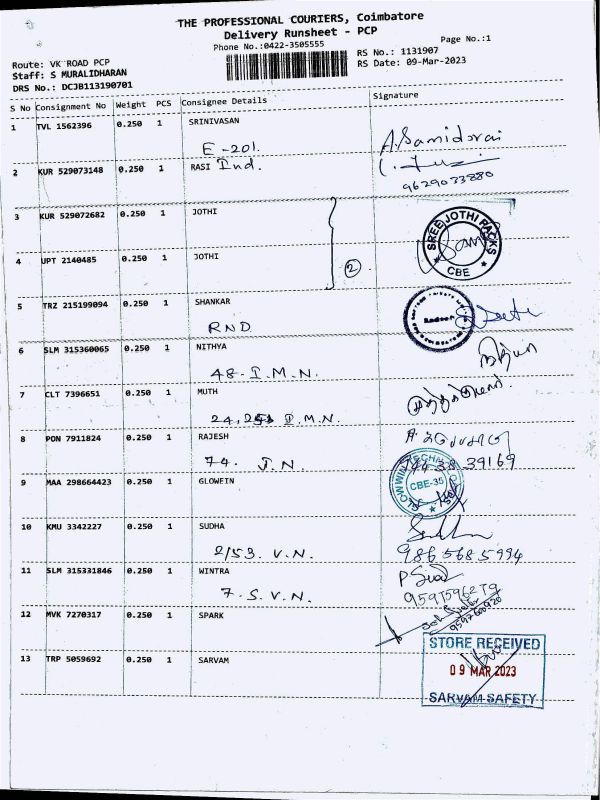 THE PROFESSIONAL COURIERS, Coimbatore
Delivery Runsheet - PCP
Phone No.:0422-3505555
Page No.:1
Route: VK ROAD PCP
RS No.: 1131907
Staff: S MURALIDHARAN
RS Date: 09-Mar-2023
DRS No.: DCJB113190701
S No Consignment No Weight PCS Consignee Details Signature
1 TVL 1562396 0.250 1 SRINIVASAN
E-201. A. Samidorai
2 KUR 529073148 0.250 1 RASI Ind.
9629033880
3 KUR 529072682 0.250 1 JOTHI
SREE JOTHI PACKS
CBE
4 UPT 2140485 0.250 1 JOTHI
2
5 TRZ 215199094 0.250 1 SHANKAR
RND
6 SLM 315360065 0.250 1 NITHYA
48-I.M.N. நித்யா
7 CLT 7396651 0.250 1 MUTH
24, I.M.N.
8 PON 7911824 0.250 1 RAJESH
74. J.N. 39169
9 MAA 298664423 0.250 1 GLOWEIN
CBE-35
10 KMU 3342227 0.250 1 SUDHA
2/53. V.N. 9865685994
11 SLM 315331846 0.250 1 WINTRA
7. S.V.N.
12 MVK 7270317 0.250 1 SPARK
13 TRP 5059692 0.250 1 SARVAM
STORE RECEIVED
09 MAR 2023
SARVAM SAFETY